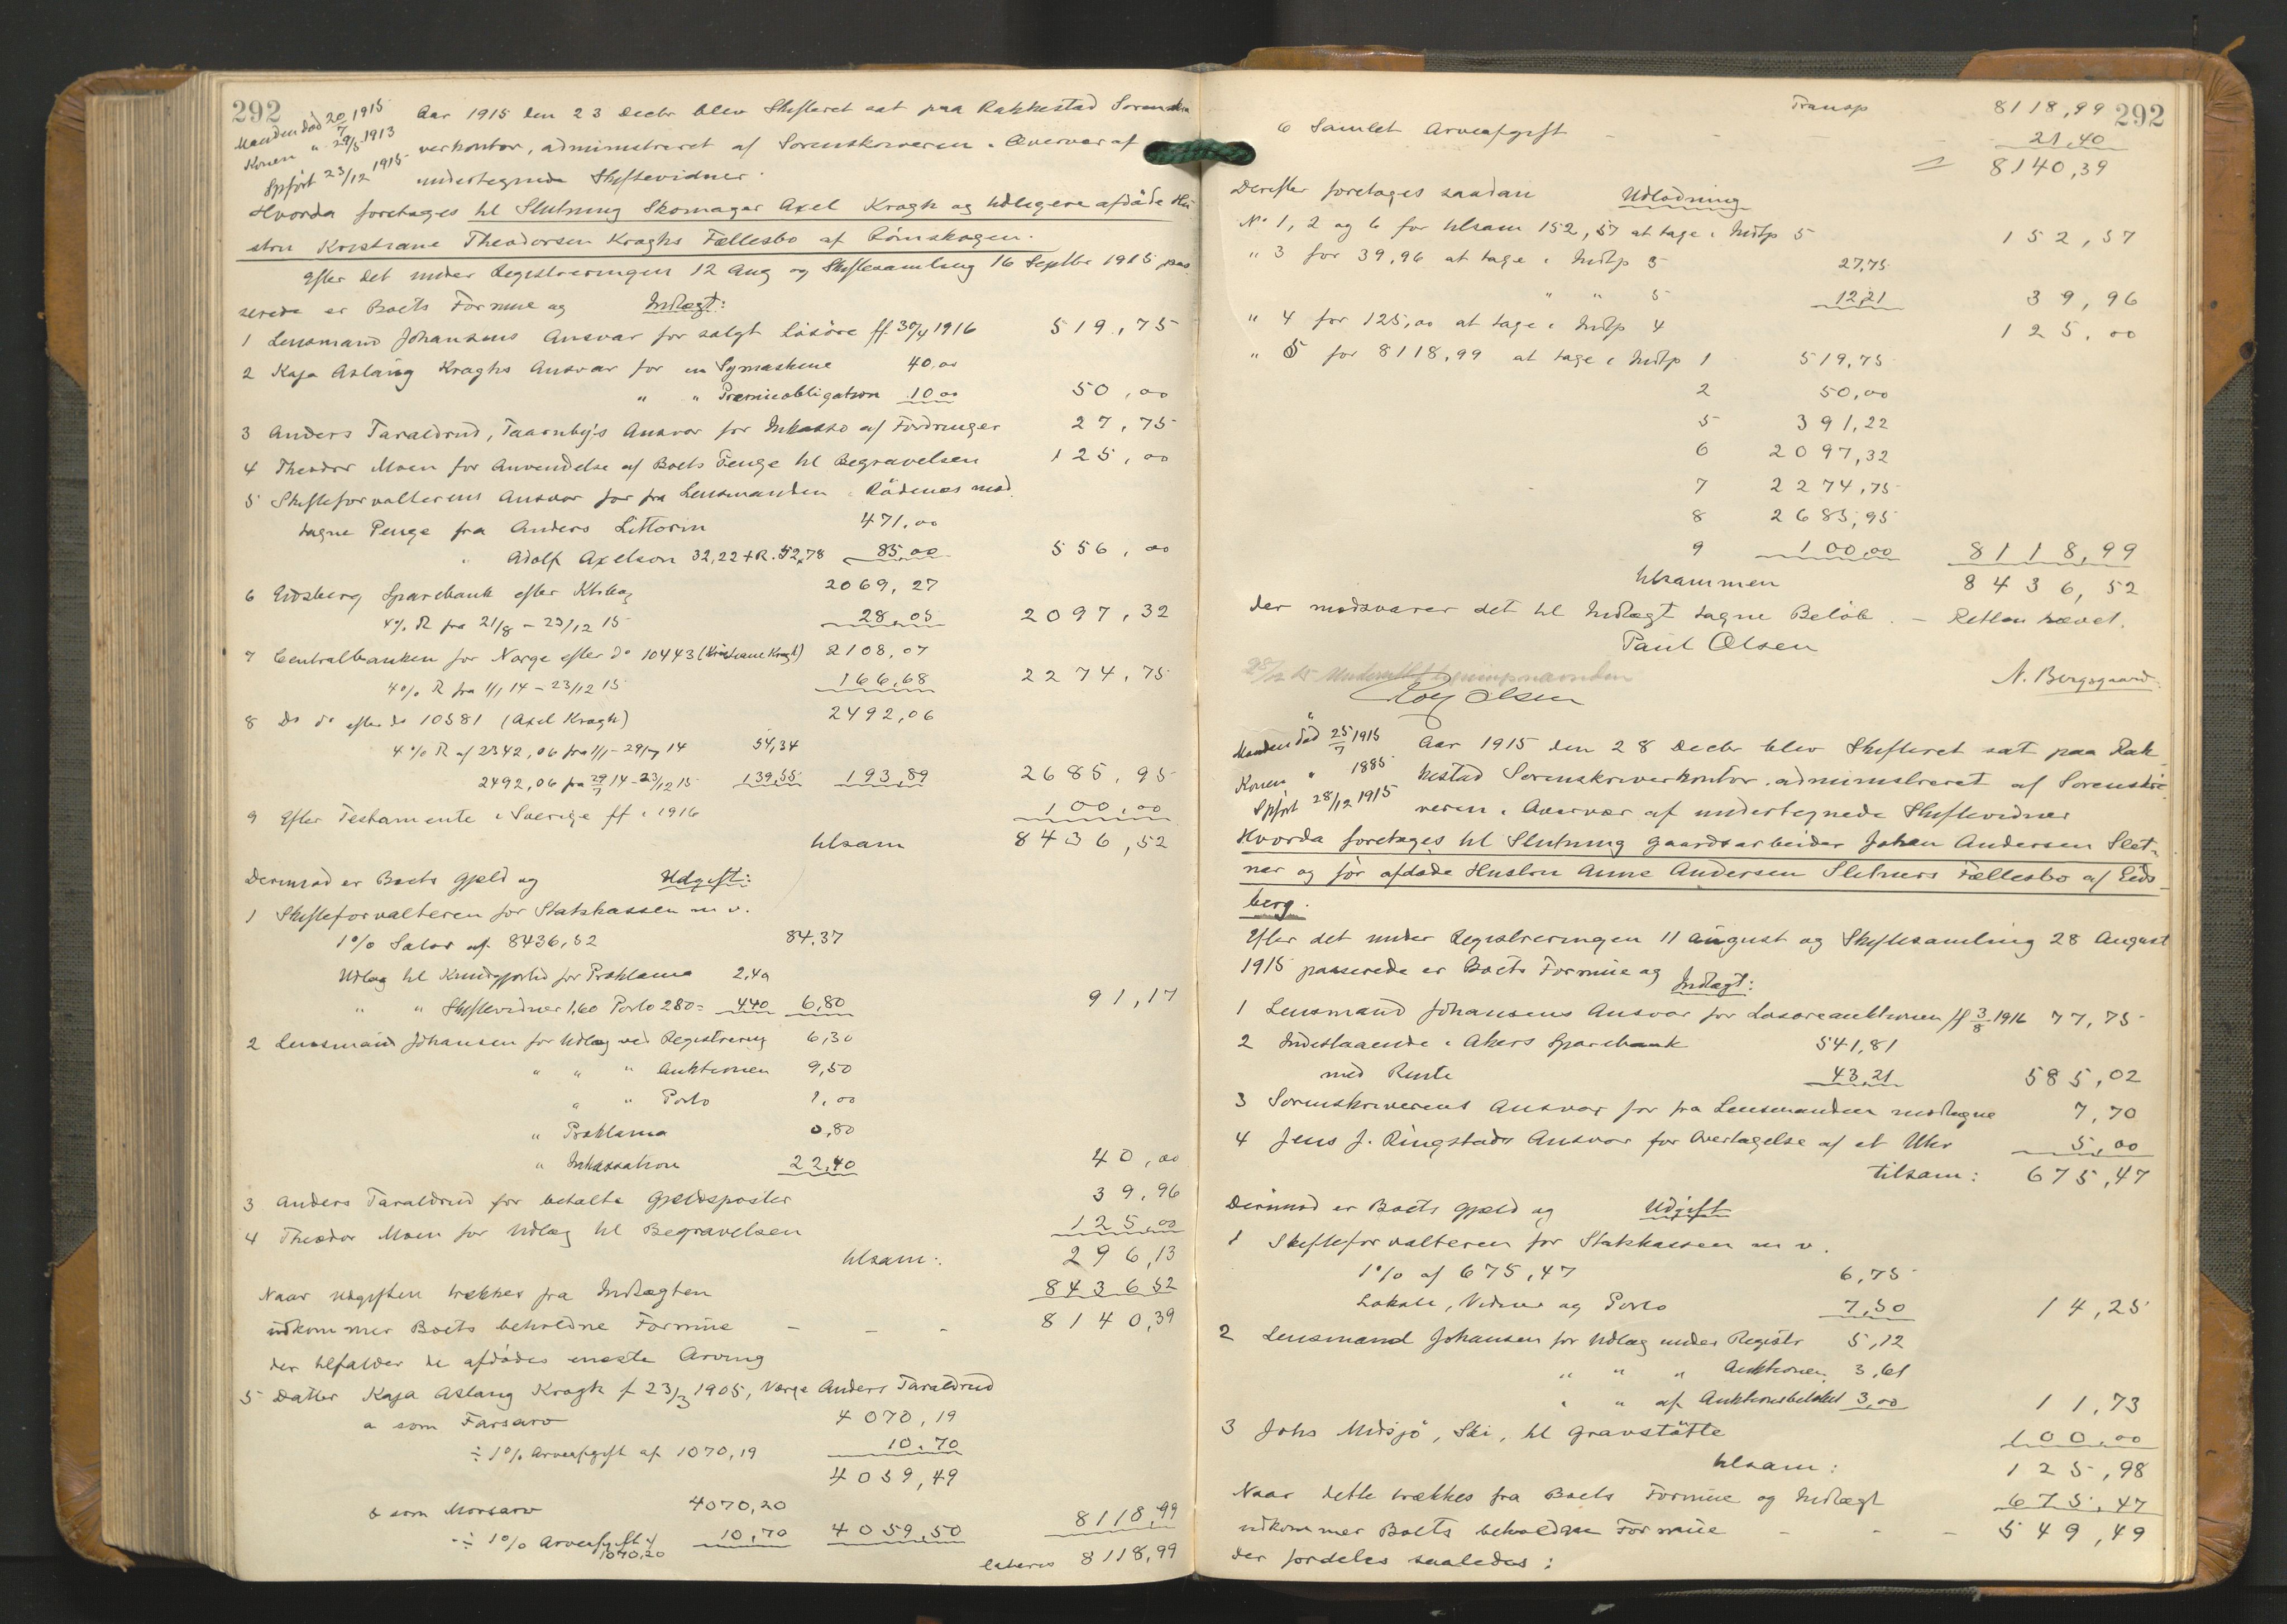 292
Manden död 20/7 1915
Konen " 29/5 1913
Spfört 23/12 1915
Aar 1915 den 23 Decbr blev Skifteret sat paa Rakkestad Sorenskri
verkontor, administreret af Sorenskriveren i Overvær af
undertegnede Skiftevidner.
Hvorda foretages til Slutning Skomager Axel Kragh og tidligere afdöde Hu
stru Kristiane Theodorsen Kraghs Fællesbo af Römskogen.
Efter det under Registreringen 12 Aug og Skiftesamling 16 Septbr 1915 pas
serede er Boets Formue og Indtægt:
1 Lensmand Johansens Ansvar for solgt Lösöre ff 30/4 1916 519,75
2 Kaja Aslaug Kraghs Ansvar for en Symaskine 40,00
" " Præmieobligation 10 00 50,00
3 Anders Taraldrud, Taarnby's Ansvar for Inkasso af Fordringer 27,75
4 Theodor Moen for Anvendelse af Boets Penge til Begravelsen 125,00
5 Skifteforvalterens Ansvar for fra Lensmanden i Rödenes mod
tagne Penge fra Anders Littorin 471,00
" Adolf Axelson 32,22 + R. 52,78 85,00 556,00
6 Eidsberg Sparebank efter Ktrbog 2069,27
4% R fra 21/8 - 23/12 15 28,05 2097,32
7 Centralbanken for Norge efter do 10443 (Kristiane Kragh) 2108,07
4% R fra 1/1 14 - 23/12 15 166,68 2274,75
8 Do do efter do 10581 (Axel Kragh) 2492,06
4% R af 2342,06 fra 1/1 - 29/7 14 54,34
2492,06 fra 29/7 14 - 23/12 15 139,55 193,89 2685,95
9 Efter Testamente i Sverige ff i 1916 100,00
tilsam 8436,52
Derimod er Boets Gjæld og Udgift:
1 Skifteforvalteren for Statskassen m v.
1% Salær af 8436,52 84,37
Udlæg til Kundgjørelse for Proklama 2,40
" " Skiftevidner 1,60 Porto 280 = 440 6,80 91,17
2 Lensmand Johansen for Udlæg ved Registrering 6,30
" " " Auktionen 9,50
" " Porto 1,00
" Proklama 0,80
" Inkassation 22,40 40,00
3 Anders Taraldrud for betalte Gjeldsposter 39,96
4 Theodor Moen for Udlæg til Begravelsen 125,00
tilsam: 296,13
Naar Udgiften trækkes fra Indtægten 8436 52
udkommer Boets beholdne Formue - - - 8140,39
der tilfalder de afdödes eneste Arving
5 Datter Kaja Aslaug Kragh f 23/3 1905, Værge Anders Taraldrud
a som Farsarv 4070,19
÷ 1% Arveafgift af 1070,19 10,70
4059,49
b som Morsarv 4070,20
÷ 1% Arveafgift af 1070,20 10,70 4059,50 8118,99
lateris 8118,99
Transp 8118,99 292
6 Samlet Arveafgift - - - 21,40
= 8140,39
Derefter foretages saadan Udlodning
No 1, 2 og 6 for tilsam 152,57 at tage i Indtp 5 152,57
" 3 for 39,96 at tage i Indtp 3 27,75
" " 5 12,21 39,96
" 4 for 125,00 at tage i Indtp 4 125,00
" 5 for 8118,99 at tage i Indtp 1 519,75
2 50,00
5 391,22
6 2097,32
7 2274,75
8 2685,95
9 100,00 8118,99
tilsammen 8436,52
der modsvarer det til Indtægt tagne Belöb. - Retten hævet.
Paul Olsen
28/12 15 Underrettet
N. Bergsgaard
Rolf Olsen
Manden död 25/7 1915
Konen " 1885
Spfört 28/12 1915
Aar 1915 den 28 Decbr blev Skifteret sat paa Rak
kestad Sorenskriverkontor, administreret af Sorenskri
veren i Overvær af undertegnede Skiftevidner
Hvorda foretages til Slutning Gaardsarbeider Johan Andersen Slet-
ner og för afdöde Hustru Anne Andersen Sletners Fællesbo af Eids-
berg.
Efter det under Registreringen 11 August og Skiftesamling 28 August
1915 passerede er Boets Formue og Indtægt:
1 Lensmand Johansens Ansvar for Lösöreauktionen ff 3/8 1916 77,75
2 Indestaaende i Akers Sparebank 541,81
med Rente 43,21 585,02
3 Sorenskriverens Ansvar for fra Lensmanden modtagne 7,70
4 Jens J. Ringstads Ansvar for Overtagelse af et Uhr 5,00
tilsam: 675,47
Derimod er Boets Gjæld og Udgift
1 Skifteforvalteren for Statskassen m v.
1% af 675,47 6,75
Lokale, Vidner og Porto 7,50 14,25
2 Lensmand Johansen for Udlæg under Registr 5,12
" " " Auktionen 3,61
" " af Auktionsbeløbet 3,00 11,73
3 Johs Midsjö, Ski, til Gravstötte 100,00
tilsam: 125,98
Naar dette trækkes fra Boets Formue og Indtægt 675,47
udkommer Boets beholdne Formue - - - 549,49
der fordeles saaledes: